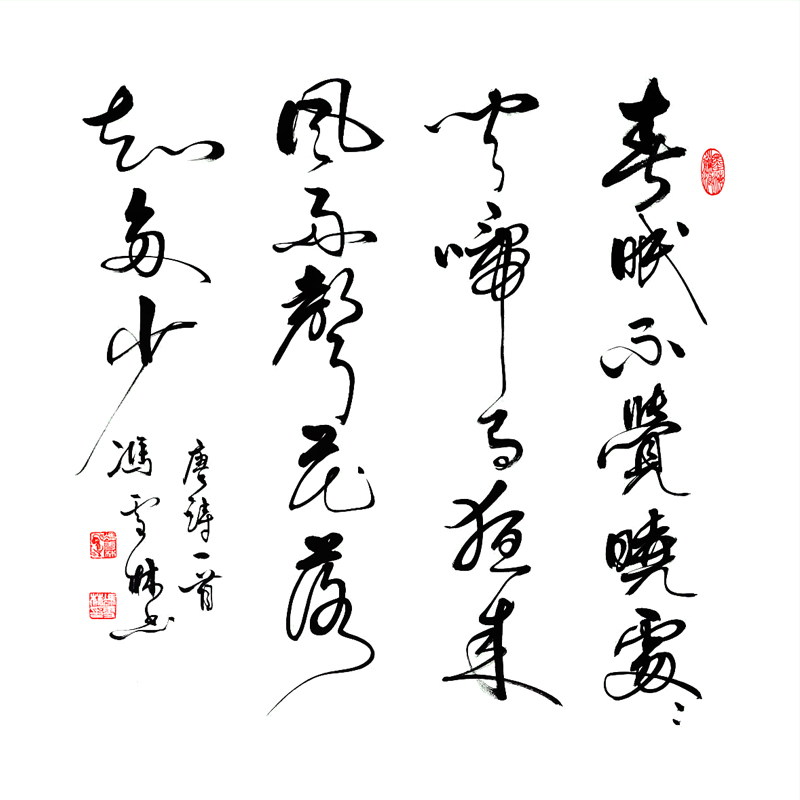 春眠不覺曉處々
聞啼鳥夜来
風雨聲花落
知多少
唐詩一首
馮雪林书